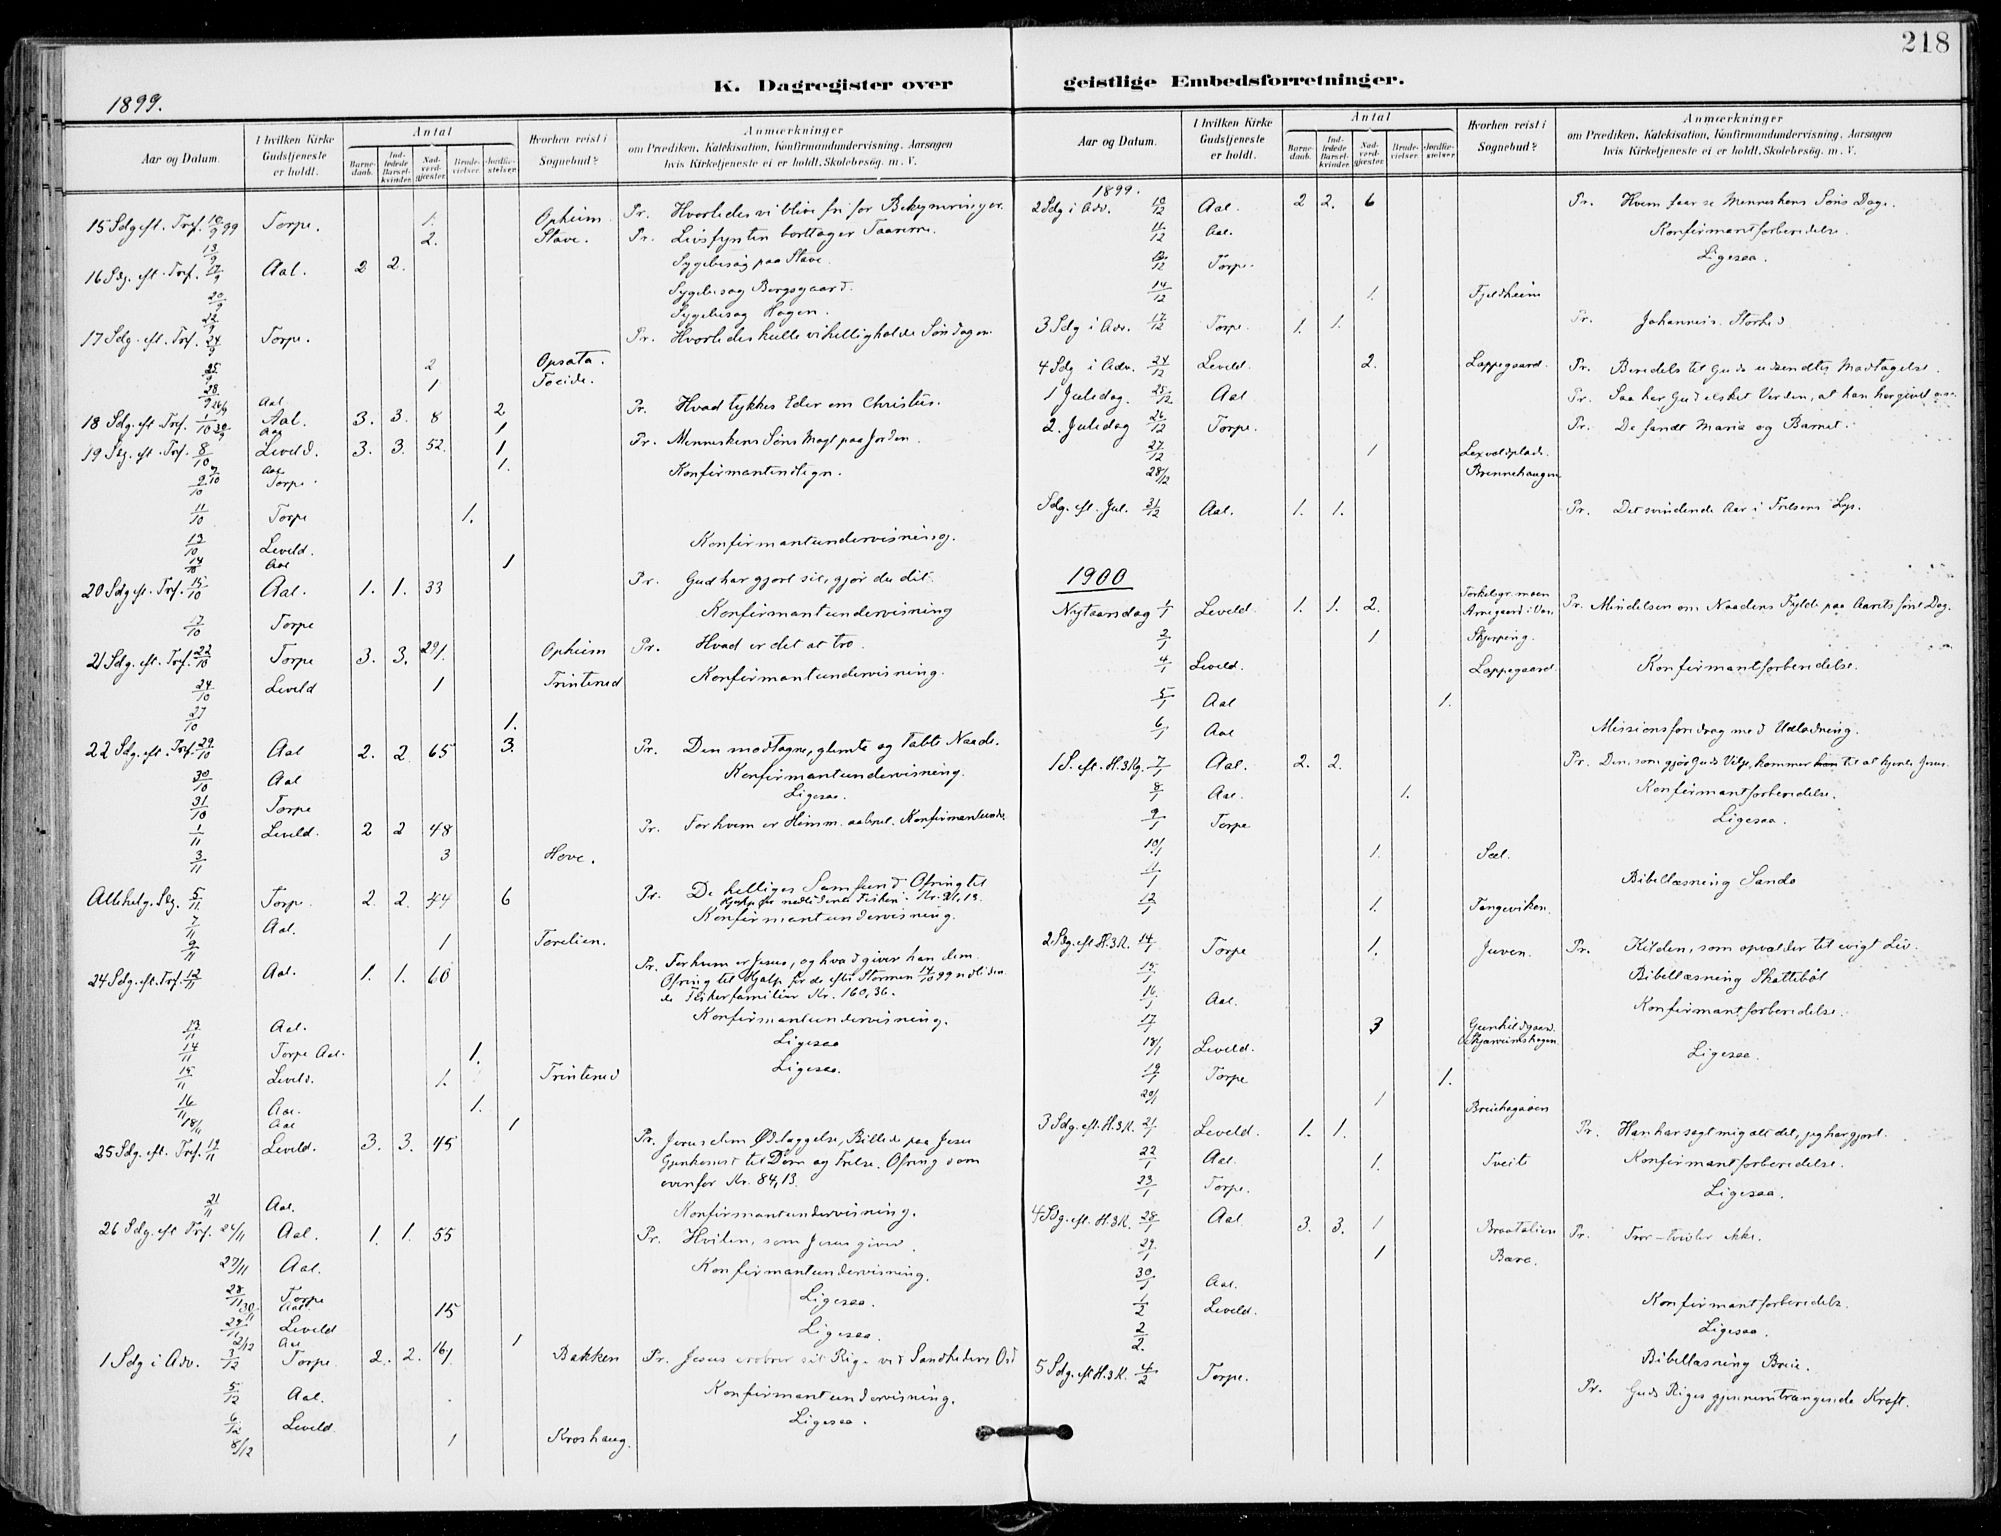 218
K. Dagregister over geistlige Embedsforretninger.
1899.
Aar og Datum. | I hvilken Kirke Gudstjeneste er holdt. | Antal | Barnedaab. | Indledede Barselkvinder. | Nadverdgjæster. | Brudevielser. | Jordfæstelser. | Hvorhen reist i Sognebud? | Anmærkninger om Prædiken, Katekisation, Konfirmandundervisning, Aarsagen hvis Kirketjeneste ei er holdt, Skolebesøg, m. V.
15 Sdg eft. Tref. 10/9 99 Torpe. 1. Opheim. Pr. Hvorledes vi blive fri for Bekymringer.
13/9 2. Slave. Pr. Livsfyrsten borttager Taarerne.
16 Sdg. eft. Tref. 17/9 Aal. 2 2. Sygebesøg paa Slave.
20/9 Sygebesøg Bergsgaard.
22/9 Sygebesøg Hagen.
17 Sdg. eft. Tref. 24/9 Torpe. Pr. Hvorledes skulle vi helligholde Søndagen.
25/9 2 Opsata.
28/9 1
26/9 Aal 2
18 Sdg. eft. Tref. 1/10 Aal. 3. 3. 8 Pr. Hvad tykkes Eder om Christus.
30/9 Aal 1
19 Sdg. eft. Tref. 8/10 Leveld. 3. 3. 52. 1 Pr. Menneskens Søns Magt paa Jorden.
7/10 Aal 1.
9/10 Torpe. Konfirmantindsign.
11/10 Torpe 1.
13/10 Leveld. Konfirmantundervisning.
14/10 Aal 1
20 Sdg eft. Tref. 15/10 Aal. 1. 1. 33 Pr. Gud har gjort sit, gjør du dit.
17/10 Torpe Konfirmantundervisning
21 Sdg. eft. Tref. 22/10 Torpe 3. 3. 29/1. Opheim Pr. Hvad er det at tro.
24/10 Leveld 1 Trinterud Konfirmantundervisning.
27/10 1.
22 Sdg. eft. Tref. 29/10 Aal 2. 2 65 3. Pr. Den modtagne, glemte og tabte Naade.
30/10 Aal Konfirmantundervisning.
31/10 Torpe Ligesaa.
1/11 Leveld. 2 2 48 Pr. For hvem er Himm. aabnet. Konfirmantunde.
3/11 3 Hove.
Allehelg. Sdg. 5/11 Torpe. 2. 2. 44 6 Pr. De helliges Samfund Ofring til
7/11 Aal. Konfirmantundervisning.
9/11 1 Torelien.
24 Sdg. eft. Tref. 12/11 Aal. 1. 1. 60 Pr. For hvem er Jesus, og hvad giver han dem.
Ofring til Hjælp for de efter Stormen 14/10 99 nødliden
de Fiskerfamilier Kr. 160,36.
13/11 Aal. Konfirmantundervisning.
14/11 Torpe Aal. 1. Ligesaa
15/11 Leveld. 1. Trinterud Ligesaa.
16/11 Aal. 1.
18/11 Aal 1
25 Sdg. eft. Tref. 19/11 Leveld. 3. 3. 45 Pr. Jerusalem Ødelæggelse, Billede paa Jesu
Gjenkomst til Dom og Frelse. Ofring som
ovenfor Kr. 84,13.
21/11 Aal. Konfirmantundervisning.
26 Sdg. eft Tref. Aal. 1. 1. 55 Pr. Hvilen, som Jesus giver.
27/11 Aal. Konfirmantundervisning.
28/11 Torpe Ligesaa.
30/11 Aal. 15
29/11 Leveld Ligesaa.
2/12 Aal 1
1 Sdg i Adv. 3/12 Torpe. 2. 2. 16/1 Bakken Pr. Jesus erobrer sit Rige ved Sandhedens Ord
5/12 Aal. Konfirmantundervisning.
6/12 Leveld Ligesaa.
8/12 1 Kroshaug.
Aar og Datum. | I hvilken Kirke Gudstjeneste er holdt. | Antal | Barnedaab. | Indledede Barselkvinder. | Nadverdgjæster. | Brudevielser. | Jordfæstelser. | Hvorhen reist i Sognebud? | Anmærkninger om Prædiken, Katekisation, Konfirmandundervisning, Aarsagen hvis Kirketjeneste ei er holdt, Skolebesøg, m. V.
1899.
2 Sdg i Adv. 10/12 Aal. 2 2. 6 Pr. Hvem faar se Menneskens Søns Dage.
11/12 Aal. Konfirmantforberedelse.
12/12 Torpe. Ligesaa.
14/12 1. Fjeldheim
3 Sdg i Adv. 17/12 Torpe. 1. 1. Pr. Johannes's Storhed
4 Sdg i Adv. 24/12 Leveld. 2. Loppegaard. Pr. Beredels til Guds udsendtes Modtagelse.
1 Juledag. 25/12 Aal Pr. Saa har Gud elsket Verden, at han har givet
2. Juledag 26/12 Torpe. Pr. De fandt Maria og Barnet.
27/12 1
28/12 Brennehaugen
Sdg. eft. Jul. 31/12 Aal. 1. 1. Pr. Det svindende Aar i Frelsens Lys.
1900
Nytaarsdag 1/1 Leveld. 1. 1. 2. Pr. Mindelsen om Naadens Fylde paa Aarets første Dag.
2/1 1 Skjerping.
4/1 Leveld. Loppegaard Konfirmantforberedelse.
5/1 Aal 1.
6/1 Aal Missionsforedrag med Udlodning.
1 S. eft. H.3Kg. 7/1 Aal. 2. 2. Pr. Den, som gjør Guds Vilje, kommer til at kjende Jesus.
8/1 Aal. 1. Konfirmantforberedelse.
9/1 Torpe Ligesaa.
10/1 1.
11/1 Bibellæsning Sando
12/1 1. Tangeviken.
2 Sdg. eft H.3K. 14/1 Torpe 1. Juven. Pr. Kilden, som opvælder til evigt Liv.
15/1 Bibellæsning Skattebøl
16/1 Aal. Konfirmantforberedelse.
17/1 3 Gunhildgaard.
18/1 Leveld. Ligesaa.
19/1 Torpe 1.
20/1 1 Breiehagaoen
3 Sdg. eft. H.3K. 21/1 Leveld. 1. 1. Pr. Han har sagt mig alt det, jeg har gjort.
22/1 Aal. 1. Tveito Konfirmantforberedelse.
23/1 Torpe. Ligesaa.
4 Sdg. eft. H.3K. 28/1 Aal 3. 3. 1 Braatalien Pr. Tror – tvivler ikke.
29/1 1
30/1 Aal. Konfirmantforberedelse.
1/2 Leveld. Ligesaa.
2/2. Bibellæsning Breie.
5 Sdg. eft H.3K. 4/2 Torpe. Pr. Guds Riges gjennemtrængende Kraft.